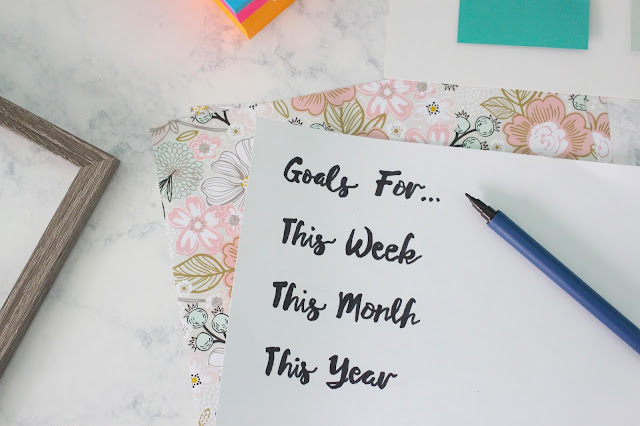 Goals For...
This Week
This Month
This Year